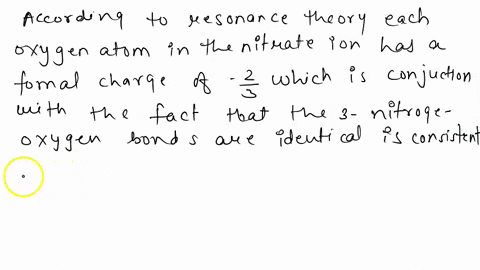 According to resonance theory each
oxygen atom in the nitrate ion has a
fomal charge of -2/3 which is conjuction
with the fact that the 3- nitroge-
oxygen bonds are identical is consistent